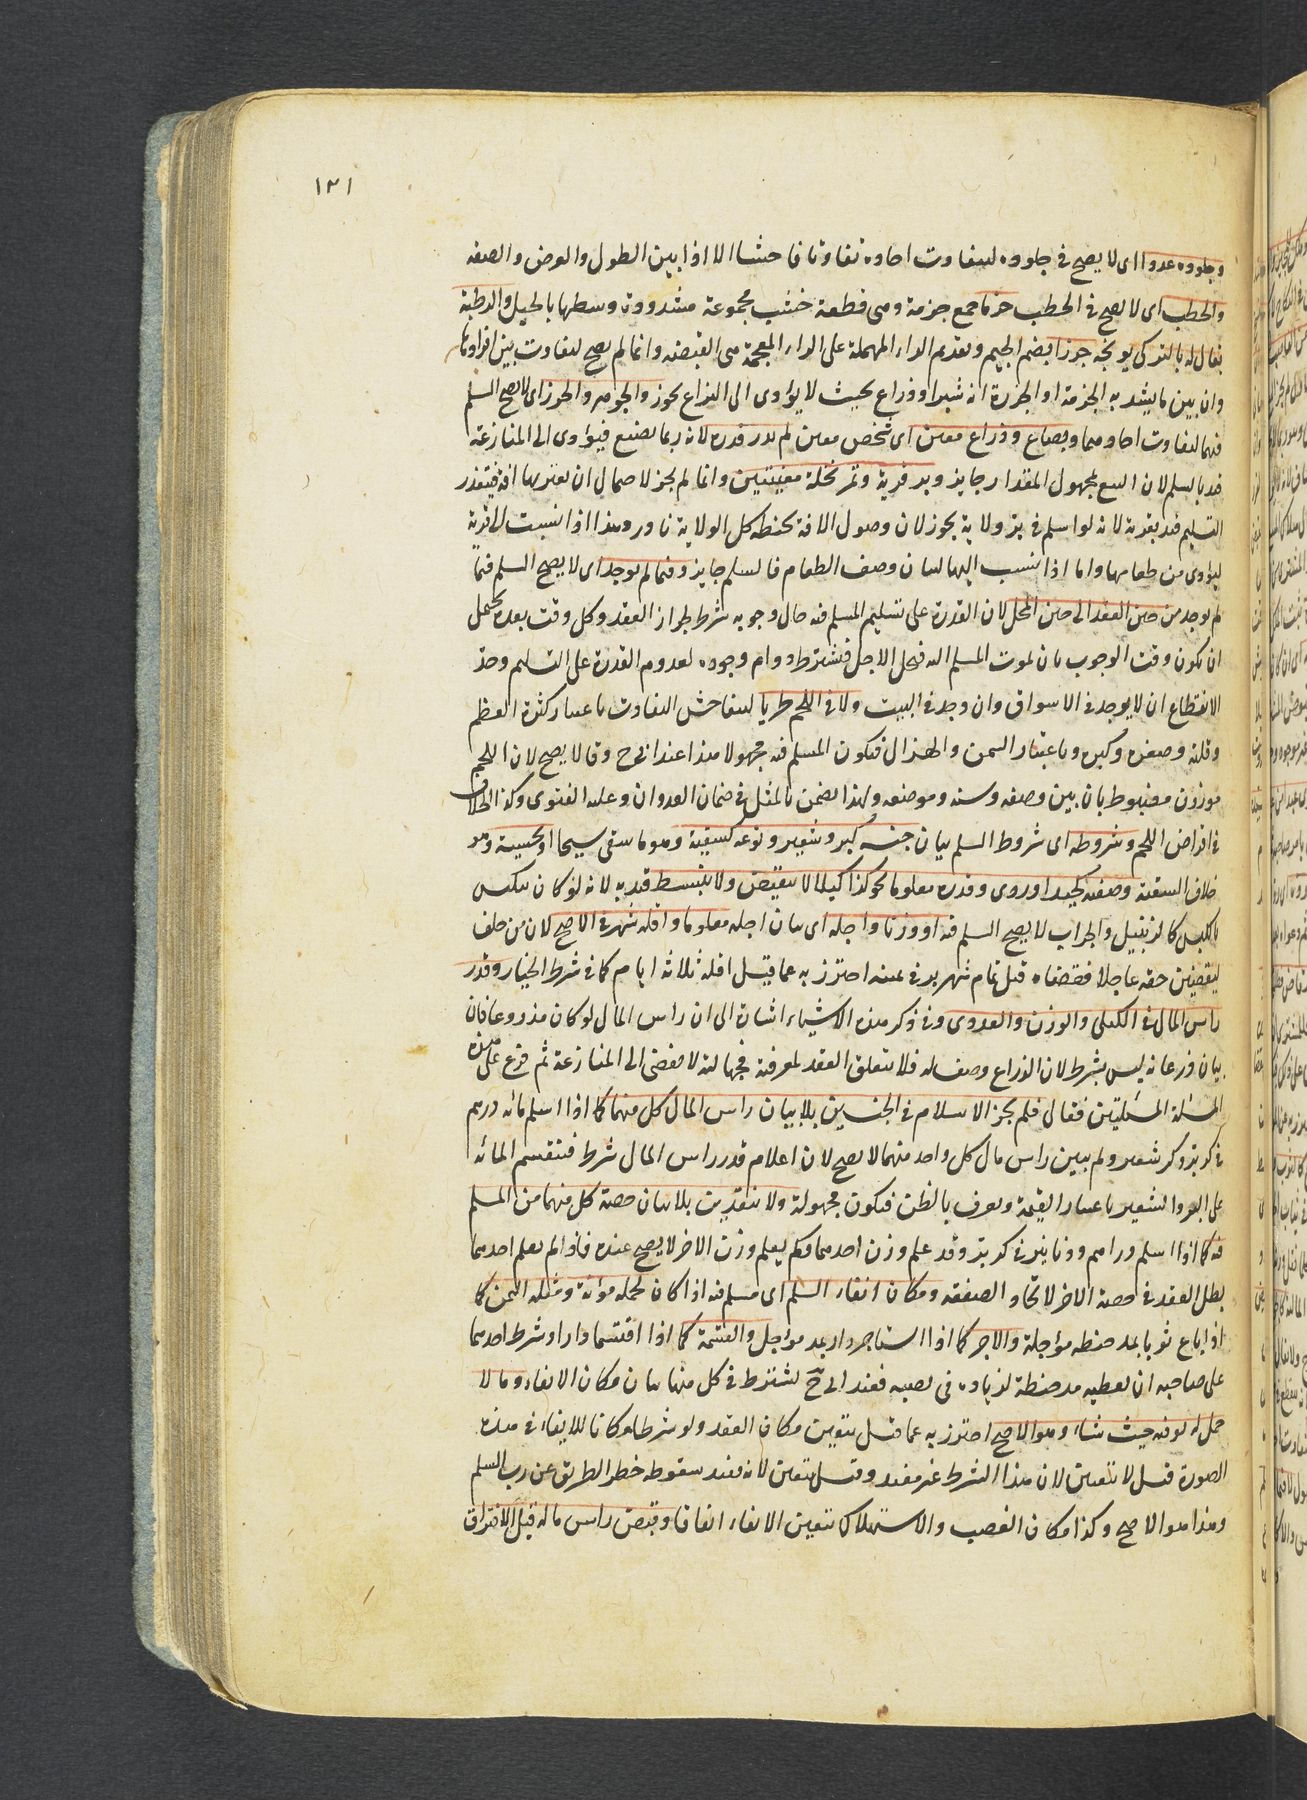 ١٣١
وجلوده عددا اى لا يصح فى جلوده لتفاوت احاده تفاوتا فاحشا الا اذا بين الطول والعرض والصفه
والحطب اى لا يصح فى الحطب حزما جمع حزمة وهى قطعة خشب مجموعة مشدودة وسطها بالحبل والرطبة
يقال له بالتركى يونجه جرزا بضم الجيم وتقديم الراء المهملة على الزاء المعجمة هى القبضه وانما لم يصح لتفاوت بين افرادها
وان بين ما يشد به الحزمة او الجرزة انه شبر او ذراع بحيث لا يؤدى الى النزاع يجوز والجوهر والخرز اى لا يصح السلم
فيهما لتفاوت احادهما وبصاع وذراع معين اى شخص معين لم يدر قدره لانه ربما يضيع فيؤدى الى المنازعة
قيد بالسلم لان البيع بمجهول المقدار جايز وبر قرية وتمر نخلة معينتين وانما لم يجز لاحتمال ان يعتريهما افة فيتعذر
التسليم قيد بقرية لانه لو اسلم فى بر ولاية يجوز لان وصول الافة بحنطه كل الولاية نادر وهذا اذا نسبت الى قرية
ليؤدى من طعامها واما اذا نسب اليها لبيان وصف الطعام فالسلم جايز وفيما لم يوجد اى لا يصح السلم فيما
لم يوجد من حين العقد الى حين المحل لان القدرة على تسليم المسلم فيه حال وجوبه شرط لجواز العقد وكل وقت بعده يحتمل
ان يكون وقت الوجوب بان يموت المسلم اليه فيحل الاجل فيشترط دوام وجوده لتدوم القدرة على التسليم وحد
الانقطاع ان لا يوجد فى الاسواق وان وجد فى البيت ولا فى اللحم طريا لتفاحش التفاوت باعتبار كثرة العظم
وقلته وصغره وكبره وباعتبار السمن والهزال فيكون المسلم فيه مجهولا هذا عند ابى ح وقالا يصح لان اللحم
موزون مضبوط بان بين وصفه وسنه وموضعه ولهذا يضمن بالمثل فى ضمان العدوان وعليه الفتوى وكذا الخلاف
فى اقراض اللحم وشروطه اى شروط السلم بيان جنسه كبر وشعير ونوعه كسقية وهو ما سقى سيحا او بخسية وهو
خلاف السقية وصفته كجيد او ردى وقدره معلوما نحو كذا كيلا لا ينقبض ولا ينبسط قيد به لانه لو كان ينكبس
بالكبس كالزنبيل والجراب لا يصح السلم فيه او وزنا واجله اى بيان اجله معلوما واقله شهر فى الاصح لان من حلف
ليقضين حقه عاجلا فقضاه قبل تمام شهر بر فى يمينه احترز به عما قيل اقله ثلاثة ايام كما فى شرط الخيار وقدر
راس المال فى الكيلى والوزن والعددى وفى ذكر هذه الاشياء اشارة الى ان راس المال لو كان مذروعا فان
بيان ذرعانه ليس بشرط لان الذراع وصف له فلا يتعلق العقد لمعرفته فجهالته لا يفضى الى المنازعة ثم فرع على هذه
المسئلة المسئلتين فقال فلم يجز الاسلام فى الجنسين بلا بيان راس المال كل منهما كما اذا اسلم مائه درهم
فى كر بر وكر شعير ولم يبين راس مال كل واحد منهما لا يصح لان اعلام قدر راس المال شرط فينقسم المائه
على البر والشعير باعتبار القيمة ويعرف بالظن فيكون مجهولة ولا بنقدين بلا بيان حصة كل منهما من المسلم
فيه كما اذا اسلم دراهم ودنانير فى كر بر وقد علم وزن احدهما فلم يعلم وزن الاخر لا يصح عنده فاذا لم يعلم احدهما
بطل العقد فى حصة الاخر لاتحاد الصفقه ومكان ايفاء السلم اى مسلم فيه اذا كان لحمله مؤنة ومثله الثمن كما
اذا باع ثوبا بمد حنطه مؤجلة والاجر كما اذا استاجر دارا بمد مؤجل والقسمة كما اذا اقتسما دارا وشرط احدهما
على صاحبه ان يعطيه مد حنطة لزيادة فى نصيبه فعند ابى ح يشترط فى كل منها بيان مكان الايفاء وما لا
حمل له يوفه حيث شاء وهو الاصح احترز به عما قيل يتعين مكان العقد ولو شرطا مكانا للايفاء فى هذه
الصورة قيل لا يتعين لان هذا الشرط غير مفيد وقيل يتعين لانه يفيد سقوطه خطر الطريق عن رب السلم
وهذا هو الاصح وكذا مكان الغصب والاستهلاك يتعين الايفاء اتفاقا وقبض راس ماله قبل الافتراق